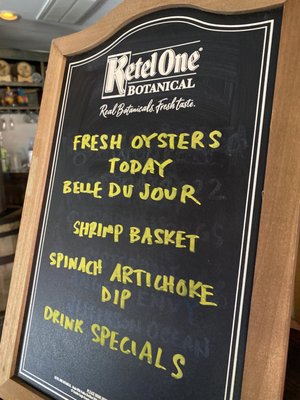 Ketel One
BOTANICAL
Real Botanicals. Fresh taste.
FRESH OYSTERS
TODAY
BELLE DU JOUR
SHRIMP BASKET
SPINACH ARTICHOKE
DIP
DRINK SPECIALS